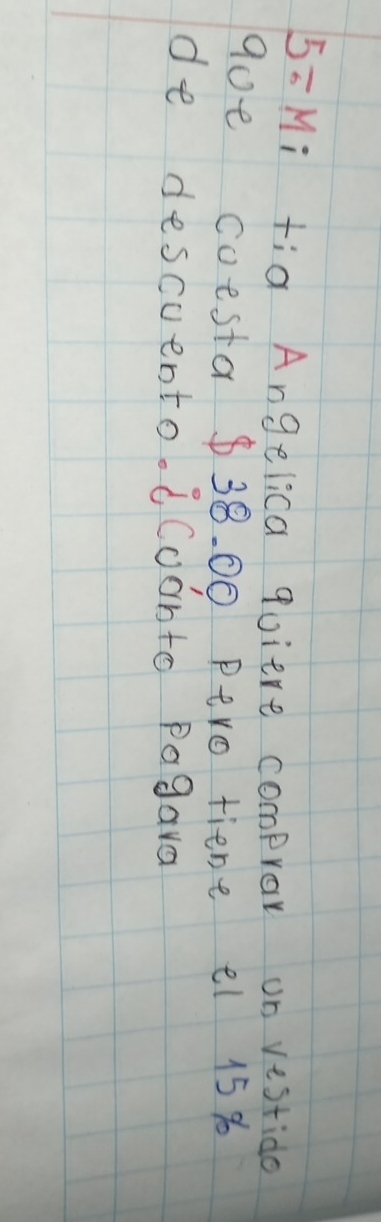 5-. Mi tia Angelica quiere comprar un vestido
que cuesta $38.00 pero tiene el 15%
de descuento. ¿Cuánto pagara